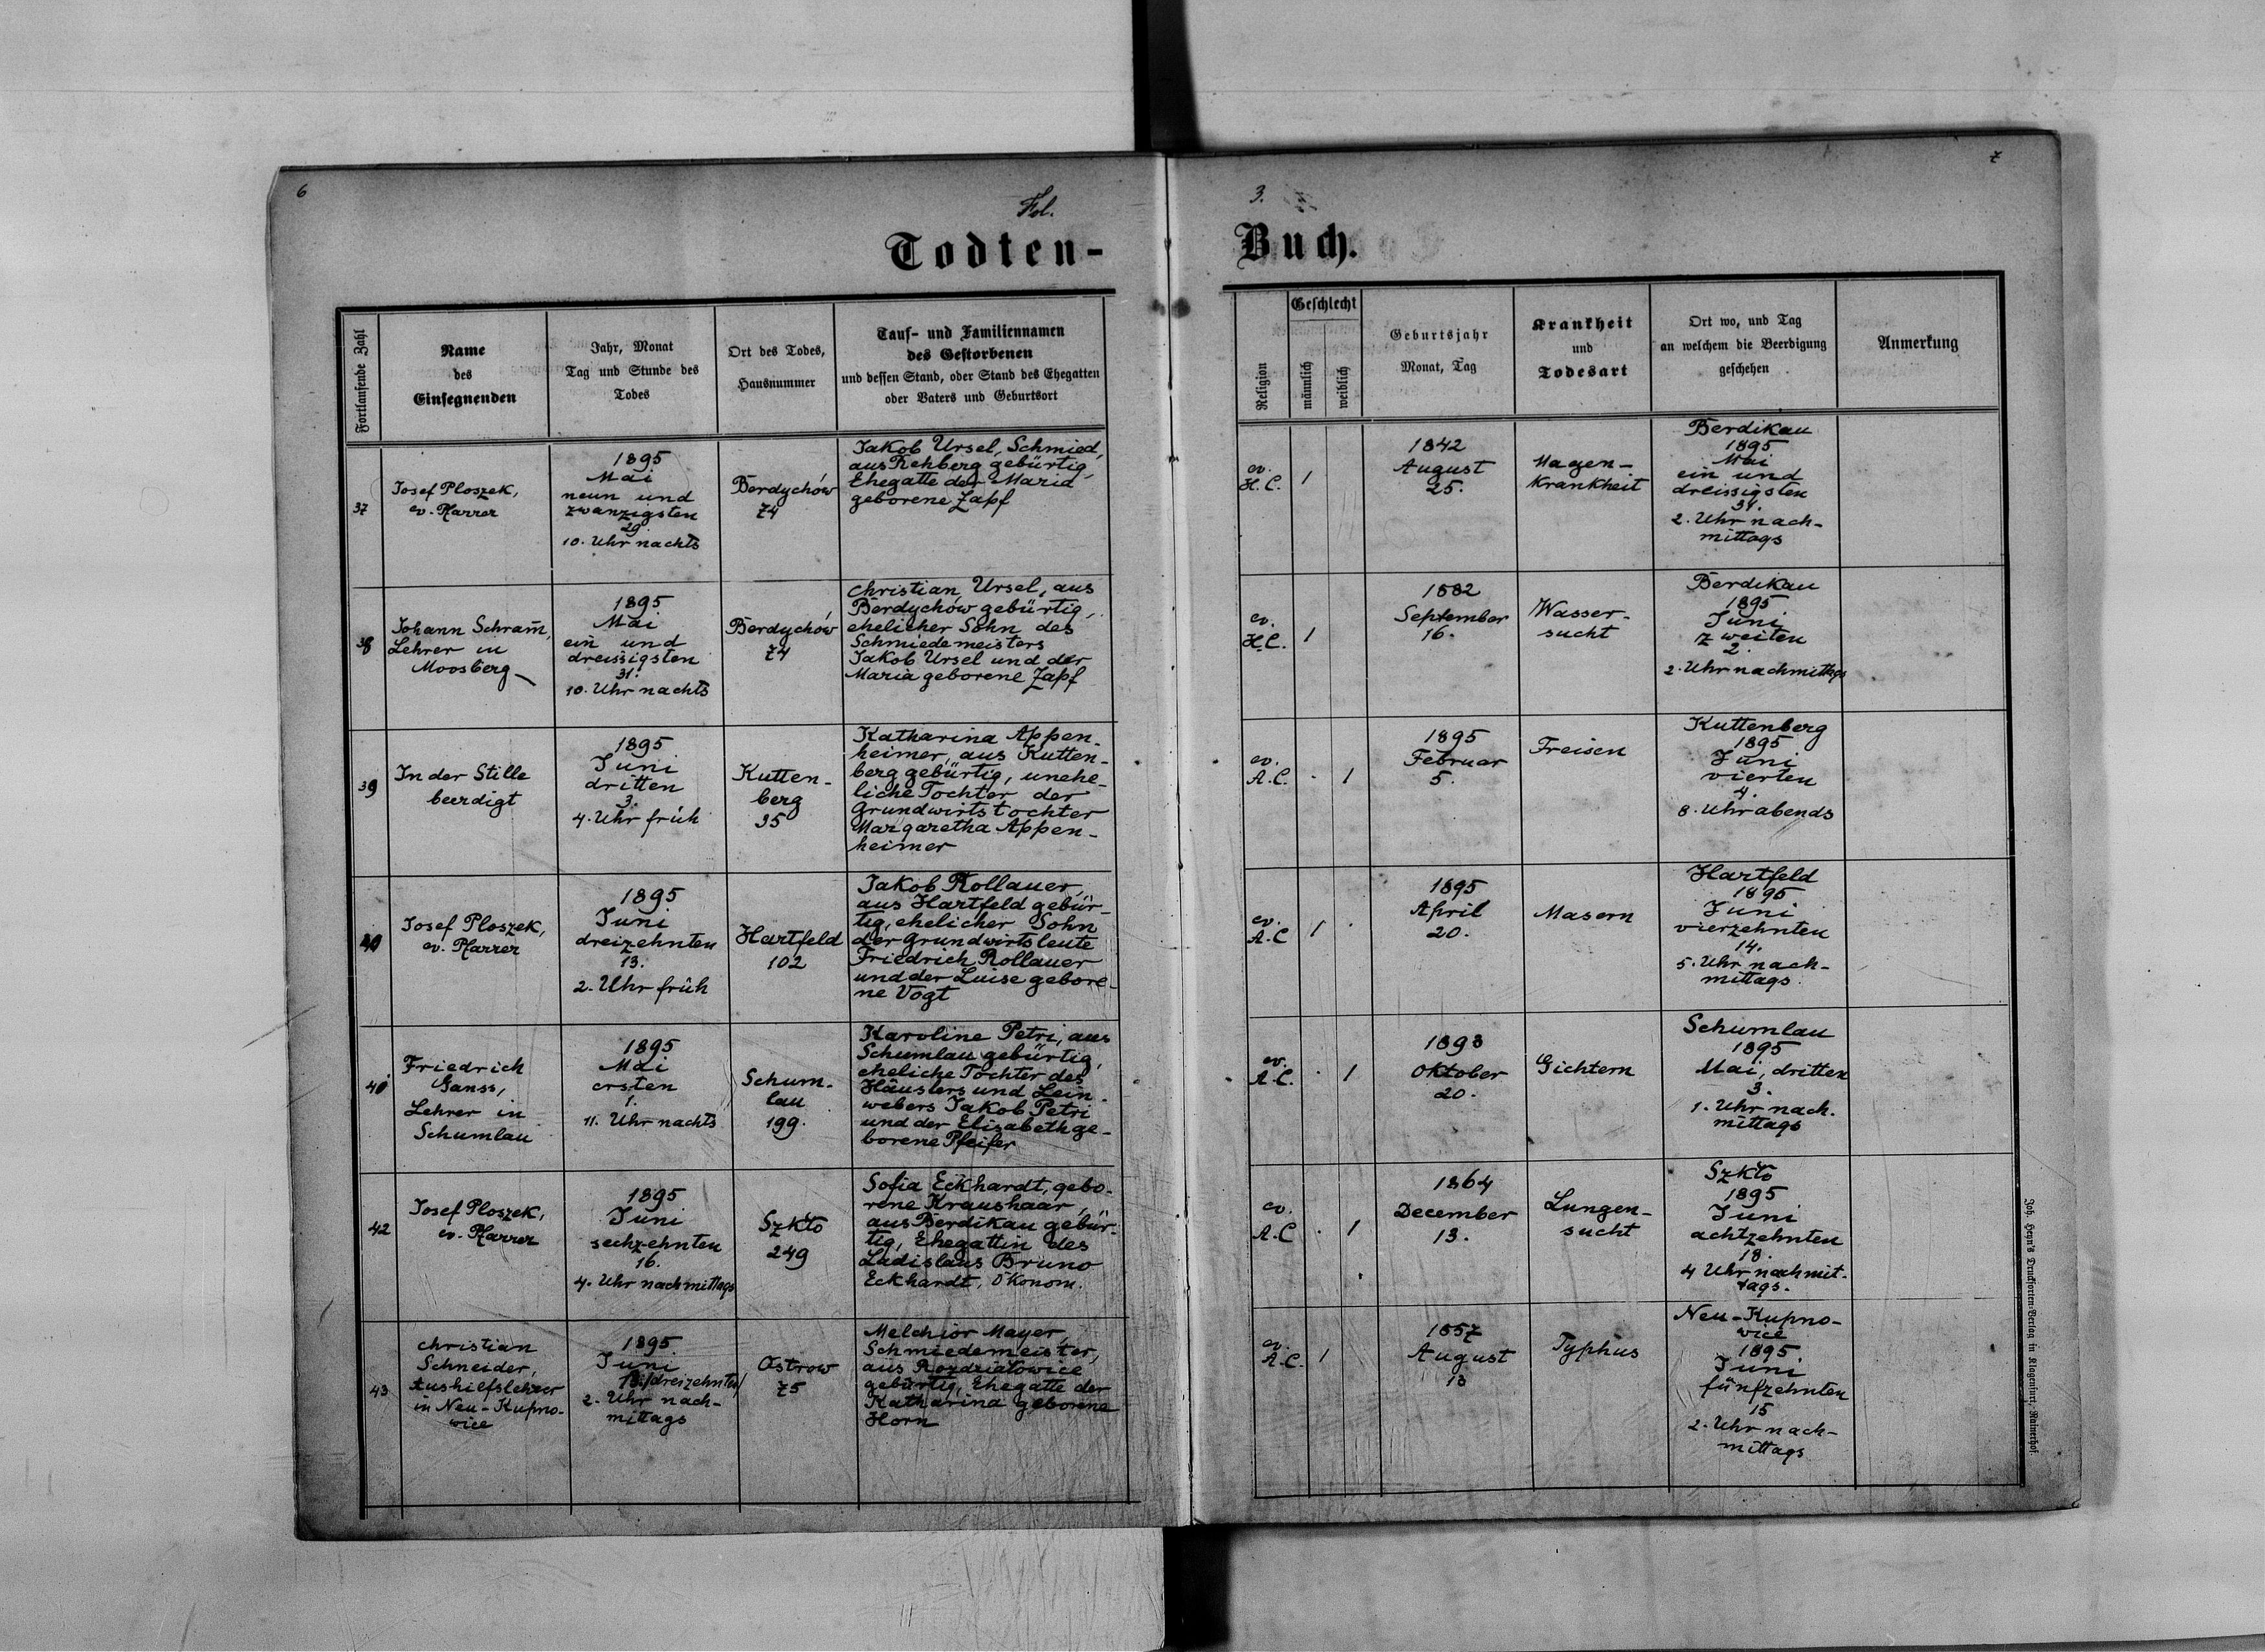 6
Fol.
3.
7
Todten-
Buch.
Fortlaufende Zahl
Name
des
Einsegnenden
Jahr, Monat
Tag und Stunde des
Todes
Ort des Todes,
Hausnummer
Tauf- und Familiennamen
des Gestorbenen
und dessen Stand, oder Stand des Ehegatten
oder Vaters und Geburtsort
Religion
Geschlecht
männlich
weiblich
Geburtsjahr
Monat, Tag
Krankheit
und
Todesart
Ort wo, und Tag
an welchem die Beerdigung
geschehen
Anmerkung
37
Josef Ploszek,
ev. Pfarrer
1895
Mai
neun und
zwanzigsten
29.
10. Uhr nachts
Berdychów
74
Jakob Ursel, Schmied,
aus Rehberg gebürtig,
Ehegatte der Maria
geborene Zapf
ev.
H. C.
1
1842
August
25.
Magen-
krankheit
Berdikau
1895
Mai
ein und
dreissigsten
31.
2. Uhr nach-
mittags
38
Johann Schram̄,
Lehrer in
Moosberg
1895
Mai
ein und
dreissigsten
31.
10. Uhr nachts
Berdychów
74
Christian Ursel, aus
Berdychów gebürtig,
ehelicher Sohn des
Schmiedemeisters
Jakob Ursel und der
Maria geborene Zapf
ev.
H.C.
1
1882
September
16.
Wasser-
sucht
Berdikau
1895
Juni
zweiten
2.
2. Uhr nachmittags
39
In der Stille
beerdigt
1895
Juni
dritten
3.
4. Uhr früh
Kutten-
berg
35
Katharina Appen-
heimer, aus Kutten-
berg gebürtig, unehe-
liche Tochter der
Grundwirtstochter
Margaretha Appen-
heimer
ev.
A.C.
1
1895
Februar
5.
Freisen
Kuttenberg
1895
Juni
vierten
4.
8. Uhr abends
40
Josef Ploszek,
ev. Pfarrer
1895
Juni
dreizehnten
13.
2. Uhr früh
Hartfeld
102
Jakob Rollauer,
aus Hartfeld gebür-
tig, ehelicher Sohn
der Grundwirtsleute
Friedrich Rollauer
und der Luise gebore-
ne Vogt
ev.
A.C
1
1895
April
20.
Masern
Hartfeld
1895
Juni
vierzehnten
14.
5. Uhr nach-
mittags.
Friedrich
Ganss,
Lehrer in
Schumlau
1895
Mai
ersten
1.
11. Uhr nachts
Schum-
lau
199.
Karoline Petri, aus
Schumlau gebürtig,
eheliche Tochter des
Häuslers und Lein-
webers Jakob Petri
und der Elisabeth ge-
borene Pfeifer
ev.
A.C.
1
1893
Oktober
20.
Gichtern
Schumlau
1895
Mai, dritten
3.
1. Uhr nach.
mittags
42
Josef Ploszek,
ev. Pfarrer
1895
Juni
sechzehnten
16.
4. Uhr nachmittags
Szkło
249
Sofia Eckhardt, gebo-
rene Kraushaar,
aus Berdikau gebür-
tig, Ehegattin des
Ladislaus Bruno
Eckhardt, Ökonom.
ev.
A.C
1
1864
December
13.
Lungen-
sucht
Szkło
1895
Juni
achtzehnten
18.
4 Uhr nachmit-
tags.
43
Christian
Schneider,
Aushilfslehrer
in Neu-Kupno-
wice
1895.
Juni
13./dreizehnten/
2. Uhr nach-
mittags
Ostrow
75
Melchior Mayer,
Schmiedemeister,
aus Rozdziałowice
gebürtig, Ehegatte der
Katharina geborene
Horn
ev.
A.C.
1
1857
August
13
Typhus
Neu-Kupno-
wice
1895
Juni
fünfzehnten
15
2. Uhr nach-
mittags
Joh. Heyn's Drucksorten-Verlag in Klagenfurt, Rainerhof.